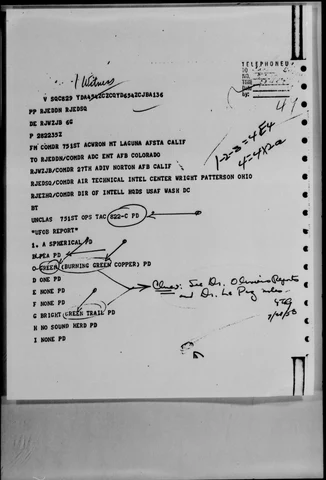 1 Witness
TELEPHONED
V SQC829 YDA454ZCZCQYD454ZCJBA136
PP RJEDDN RJEDSQ
DE RJWZJB 6G
P 282235Z
FM COMDR 751ST ACWRON MT LAGUNA AFSTA CALIF
TO RJEDDN/COMDR ADC ENT AFB COLORADO
RJWZJB/COMDR 27TH ADIV NORTON AFB CALIF
RJEDSQ/COMDR AIR TECHNICAL INTEL CENTER WRIGHT PATTERSON OHIO
RJEZHQ/COMDR DIR OF INTELL HQDS USAF WASH DC
BT
UNCLAS 751ST OPS TAC 822-C PD
"UFOB REPORT"
1. A SPHERICAL PD
B. PEA PD
C GREEN (BURNING GREEN COPPER) PD
D ONE PD
E NONE PD
F NONE PD
G BRIGHT GREEN TRAIL PD
H NO SOUND HERD PD
I NONE PD
1-2-3=4E4
See Dr.
and Dr. La Paz